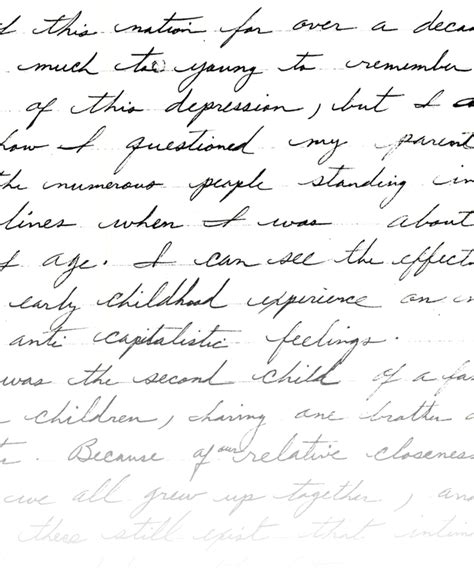 this nation for over a deca
much too young to remember
of this depression, but I
how I questioned my parent
the numerous people standing in
lines when I was about
age. I can see the effect
early childhood experience on
anti capitalistic feelings.
was the second child of a fa
children, sharing one brother
Because of our relative closeness
we all grew up together, an
there still exist that intim